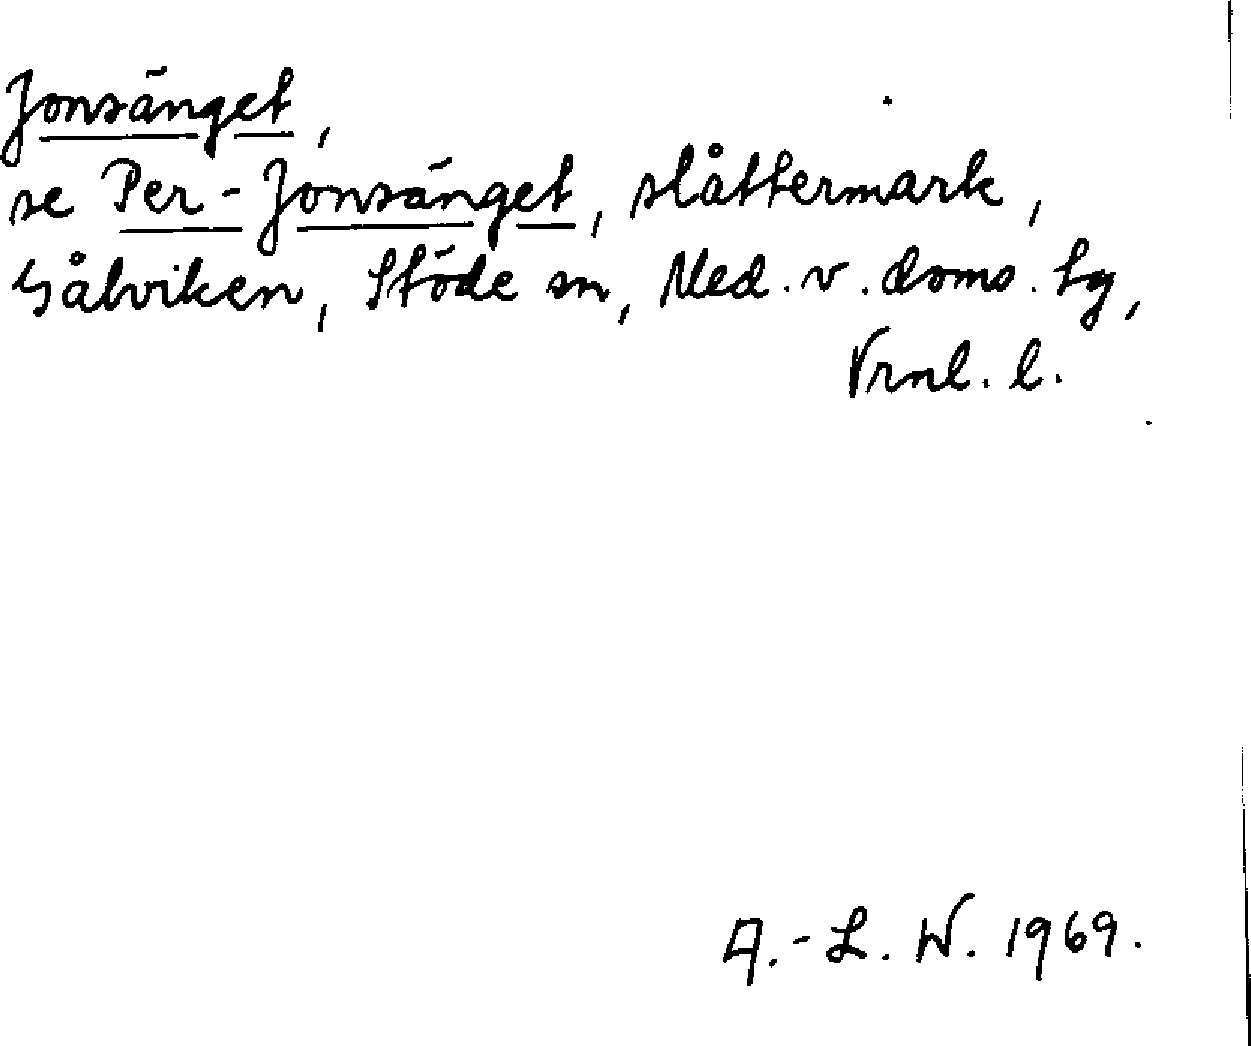 Jonsänget,
se Per-Jonsänget, slåttermark,
Gålviken, Stöde sn, Med. v. doms. tg,
Vrnl. l.
A.-L. W. 1969.